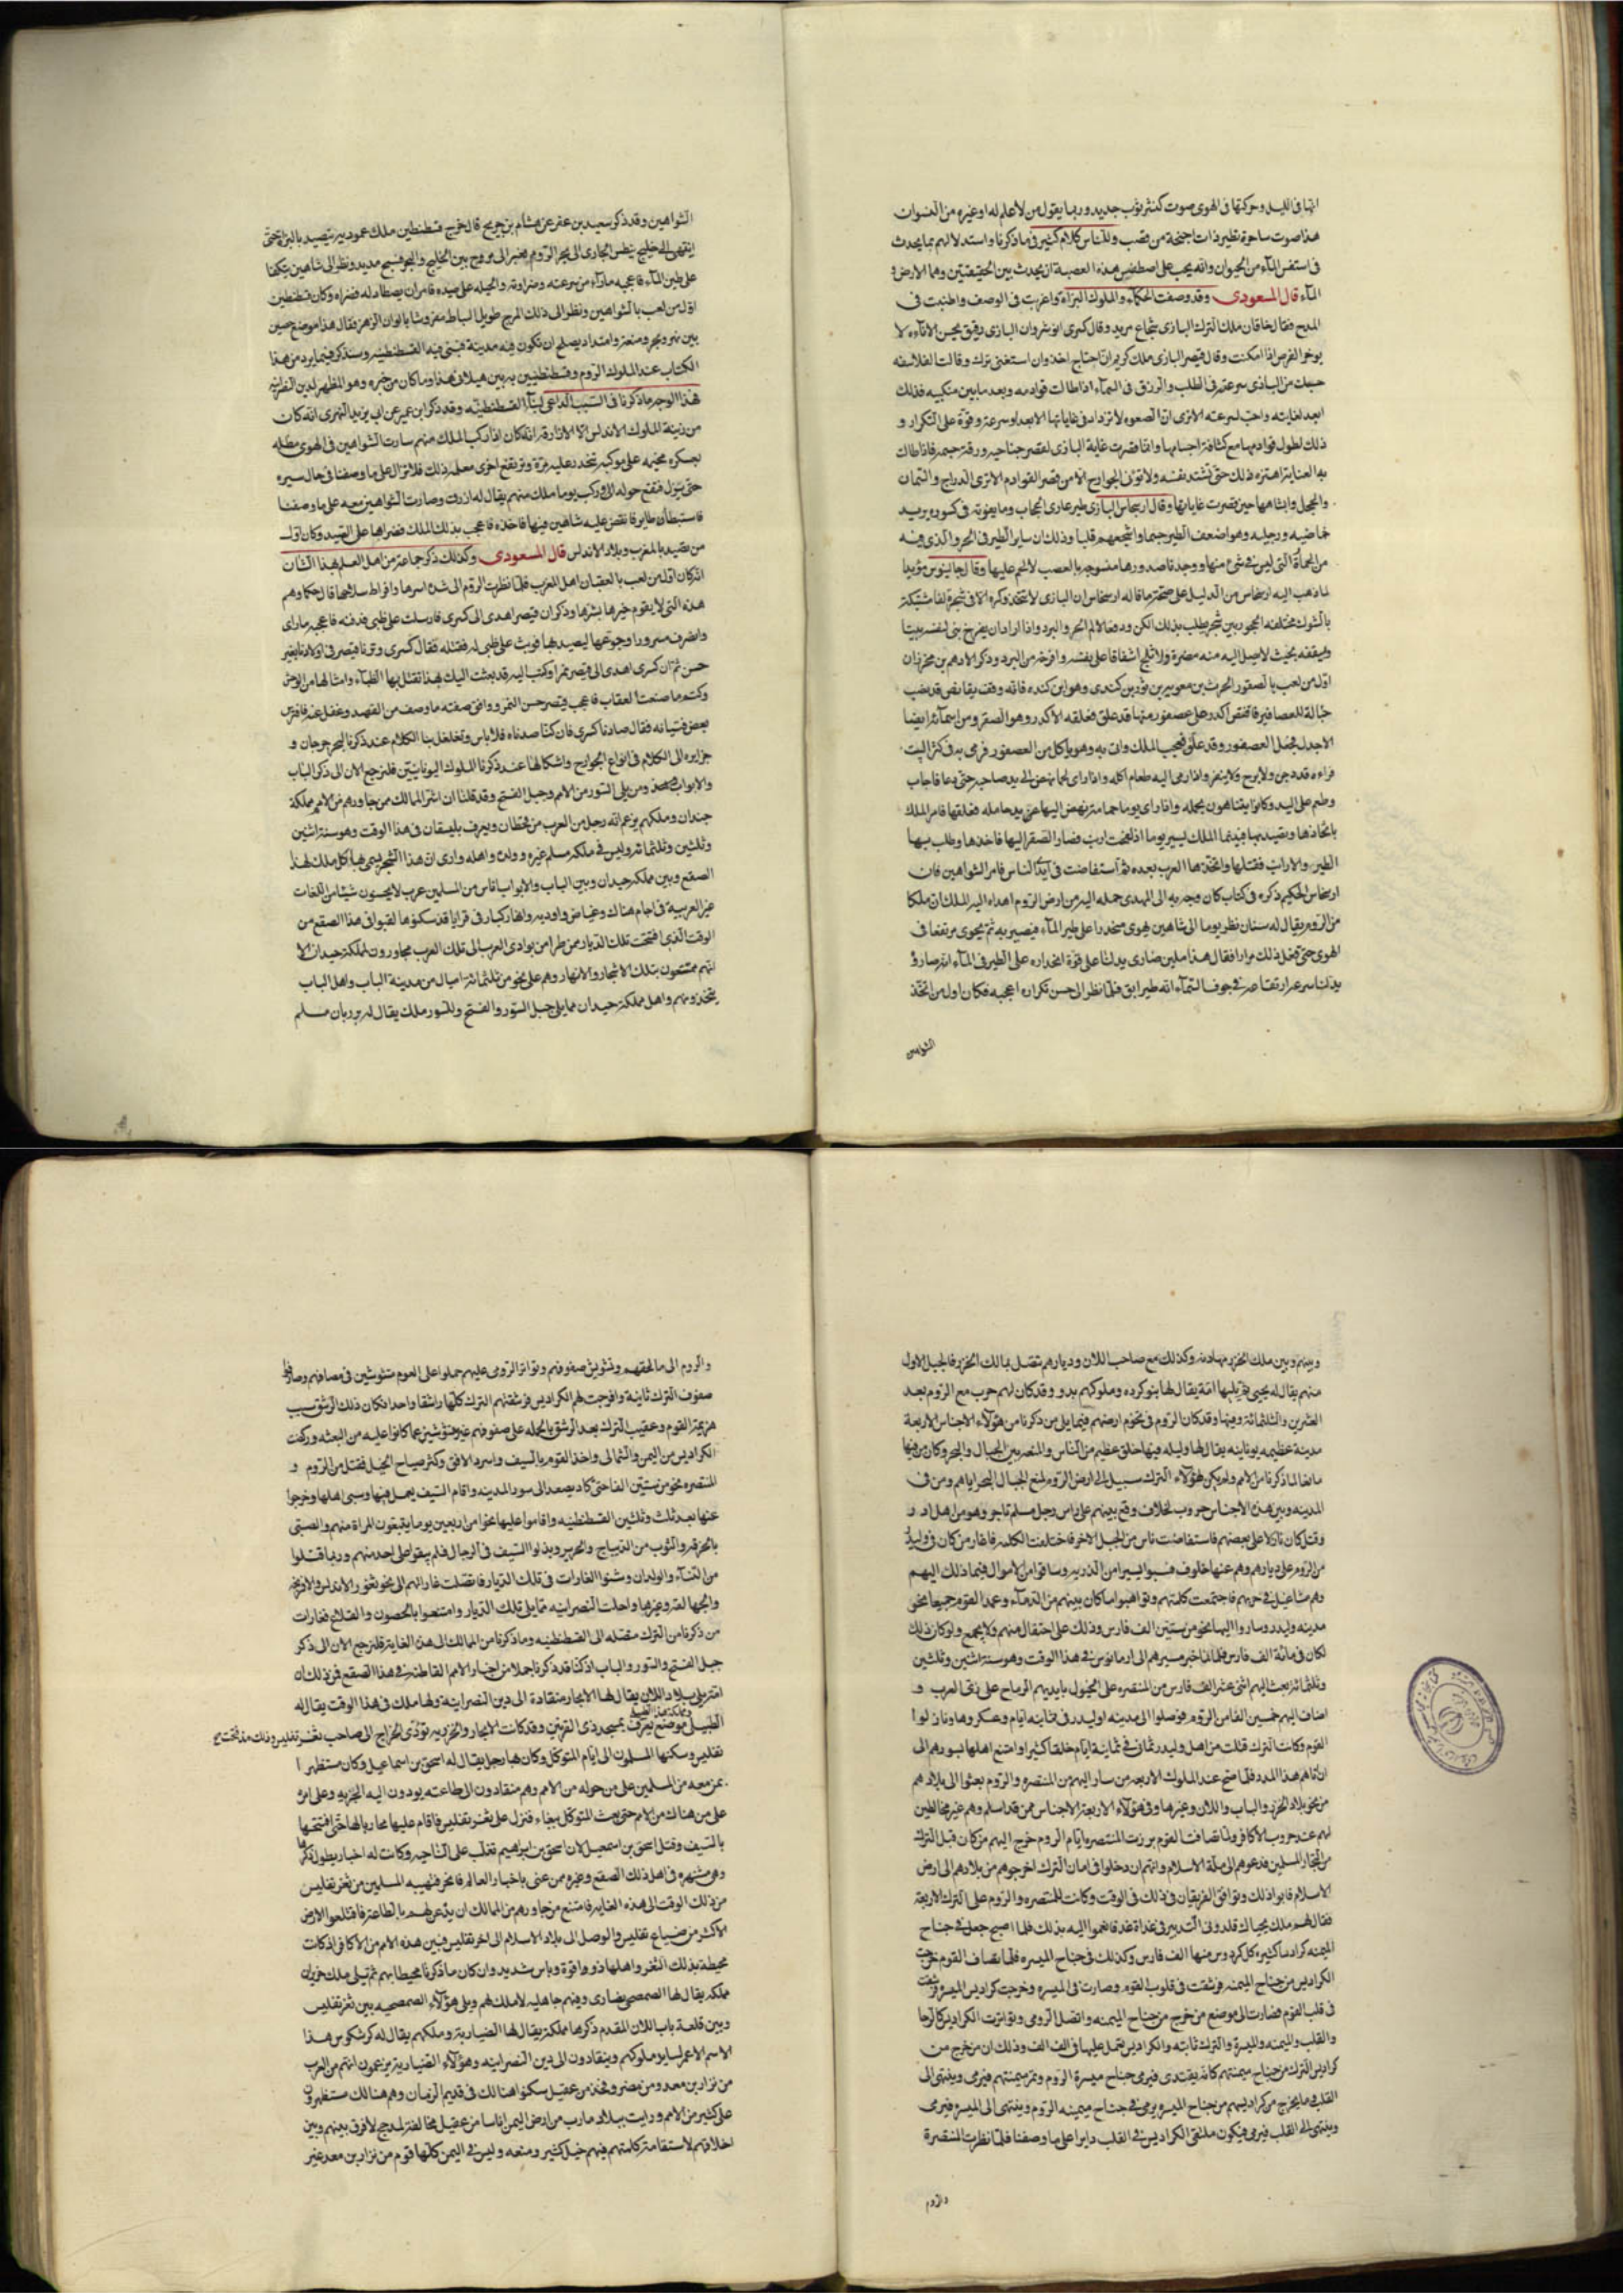 انها فى الليل وحركتها فى الهوى صوت كنشر ثوب جديد وربما يقول من لا علم له او غيره من النسوان
هذا صوت ساحرة تطير ذات اجنحة من قصب وللناس كلام كثير فى ما ذكرنا واستدلالهم بما يحدث
فى اسقس المآء من الحيوان وانه يجب على اصطقس هذه العصبة ان يحدث بين الحقيقتين وهما الارض و
المآء قال المسعودى وقد وصفت الحكمآء والملوك البزاة واغربت فى الوصف واطنبت فى
المدح فقال خاقان ملك الترك البازى شجاع مريد وقال كسرى انوشروان البازى رفيق يحسن الاناة ولا
يوخر الفرص اذا امكنت وقال قيصر البازى ملك كريم ان احتاج اخذ وان استغنى ترك وقالت الفلاسفه
حسبك من البازى سرعته فى الطلب والرزق فى السمآء اذا طالت قوادمه وبعد ما بين منكبيه فذلك
ابعد لغايته واخب لسرعته الا ترى ان الصعوه لا تزداد فى غاياتها الا بعدا وسرعة وقوة على التكرار و
ذلك لطول قوادمها مع كثافة اجسامها وانما قصرت غاية البازى لقصر جناحيه ورقة جسمه فاذا طالت
به الغاية ذلك حتى تشتد نفسه ولا توتى الجوارح الا من قصر القوادم الا ترى الدراج والسمان
والحجل واشباهها حين قصرت غاياتها وقال ارسجاس البازى طير عارى الحجاب وما يفوته فى كسوره يريد
خماصيه ورجليه وهو اضعف الطير جسما واشجعهم قلبا وذلك ان ساير الطير فى الحر والذى فيه
من الحماة التى ليس فى شئ منها ووجدنا صدورها منسوجه بالعصب لا لحم عليها وقال جالينوس مؤيدا
لما ذهب اليه ارسجاس من الدليل على صحة ما قاله ارسجاس ان البازى لا تتخذ وكره الا فى شجرة لفا مشتبكة
بالشوك مختلفه الحجوم بين شجر يطلب بذلك الكن ودفعا لالم الحر والبرد واذا اراد ان يفرخ بنى لنفسه بيتا
وسقفه بحيث لا يصل اليه منه مضرة ولا ثلج اشفاقا على نفسه وافرخه من البرد وذكر الادهم بن محرز ان
اول من لعب بالصقور الحرث بن معويه بن ثور بن كندى وهو ابن كنده فانه وقف بقانص قد نصب
حبالة للعصافير فانقض اكدر على عصفور منها قد علق فعلقه الاكدر وهو الصقر ومن اسمآئه ايضا
الاجدل فجعل العصفور وقد علق فعجب الملك واتى به وهو ياكل من العصفور فرمى به فى كثر البيت
فراءه قد دجن ولا يبرح ولا ينفر واذا رمى اليه طعام اكله واذا راى لحما نهض الى يد صاحبه حتى دعا فاجاب
وطعم على اليد وكانوا يتباهون بحمله واذا راى يوما حمامة نهض اليها عن يد حامله فعلقها فامر الملك
باتخاذها ويتصيد بها فبينما الملك يسير يوما اذ لمحت ارنب فصار الصقر اليها فاخذها وطلب بها
الطير والارانب فقتلها واتخذها العرب بعده ثم استفاضت فى ايدى الناس فاما الشواهين فان
ارسجاس الحكيم ذكره فى كتاب كان وجه به الى المهدى حمله اليه من ارض الروم اهداه اليه الملك ان ملكا
من الروم يقال له سنان نظر يوما الى شاهين يهوى منحدرا على طير المآء فيضربه ثم يحوى مرتفعا فى
الهوى حتى فعل ذلك مرارا فقال هذا ملين ضارى يدلنا على قوة انحداره على الطير فى المآء انه ضارى و
يدلنا سرعة ارتفاعه فى جوف السمآء انه طير ابق فلما نظر الى حسن تكراره اعجبه فكان اول من اتخذ
الشواهين
الشواهين وقد ذكر سعيد بن عفر عن هشام بن جريح قال خرج قسطنطين ملك عموديه يتصيد بالبزاة حتى
انتهى الى خليج نيطس الجارى الى بحر الروم فعبر الى مروج بين الخليج والبحر فسيح مديد ونظر الى شاهين يتكفا
على طير المآء فاعجبه ما رآه من سرعته وضراوته والحيله على صيده فامر ان يصطاد له فضراه وكان قسطنطين
اول من لعب بالشواهين ونظر الى ذلك المرج طويل البساط مفروشا بالوان الزهر فقال هذا موضع حصين
بين نهر وبحر وسعة وامتداد يصلح ان تكون فيه مدينة فبنى فيه القسطنطنيه وسنذكر فيما يرد من هذا
الكتاب عند الملوك الروم وقسطنطنيين به بين هيلانى هذا وما كان من خبره وهو المظهر لدين النصرانيه
فهذا الوجه ما ذكرنا فى السبب الداعى لبنآء القسطنطنيه وقد ذكر ابن عمير عن اب يزيد النهرى انه كان
من رتبة الملوك الاندلس الا الازارقه انه كان اذا ركب الملك منهم سارت الشواهين فى الهوى مظله
بعسكره مخيمه على موكبه تنحدر عليه مرة وترتفع اخرى معلمه ذلك فلا تزال على ما وصفنا فى حال سيره
حتى ينزل فتقع حوله الى ان ركب يوما ملك منهم يقال له ازرق وصارت الشواهين معه على ما وصفنا
فاستبطان طاير فانقض عليه شاهين فيها فاخذه فاعجب بذلك الملك فضراها على الصيد وكان اول
من تصيد بالمغرب وبلاد الاندلس قال المسعودى وكذلك ذكر جماعة من اهل العلم بهذا الشان
انه كان اول من لعب بالعقبان اهل المغرب فلما نظرت الروم الى شدة اسرها وافراط سلاحها قال حكماوهم
هذه التى لا يقوم خيرها بشرها وذكر ان قيصر اهدى الى كسرى فارسلت على ظبى فدفنه فاعجبه ما راى
وانصرف مسرورا وجوعها ليصيد بها فوثب على ظبى له فقتله فقال كسرى وترنا قيصر فى اولادنا بغير
حسن ثم ان كسرى اهدى الى قيصر نمرا وكتب اليه قد بعثت اليك بهذا تقتل بها الظبآء وامثالها من الوحش
وكتم ما صنعت العقاب فاعجب قيصر حسن النمر ووافق صفته ما وصف من الفهد وغفل عنه فافترس
بعض فتيانه فقال صادنا كسرى فان كنا صدناه فلا باس وتغلغل بنا الكلام عند ذكرنا لبحر جرجان و
جزايره الى الكلام فى انواع الجوارح واشكالها عند ذكرنا الملوك اليونانيين فلنرجع الان الى ذكر الباب
والابواب ومن يلى السور من الامم وجبل الفتح وقد قلنا ان اشر الممالك ممن جاورهم من الامم مملكة
جندان وملكهم يزعم انه رجل من العرب من قحطان ويعرف بليسقان فى هذا الوقت وهو سنة اثنين
وثلثين وثلثمائه وليس فى ملكه مسلم غيره وولده واهله وارى ان هذا الشجر يسمى بها كل ملك لهذا
الصقع وبين مملكة جيدان وبين الباب والابواب اناس من المسلمين عرب لا يحسنون شيئا من اللغات
غير العربية فى اجام هناك وغياض واوديه وانهار كبار فى قرايا قد سكنوها لقبوا فى هذا الصقع من
الوقت الذى افتتحت تلك الديار ممن طرا من بوادى العرب الى تلك العرب مجاورون لمملكة جيدان الا
انهم ممتنعون بتلك الاشجار والانهار وهم على نحو من ثلثمائة اميال من مدينة الباب واهل الباب
ينجدونهم واهل مملكة جيدان مما يلى جبل السور والفتح وللسور ملك يقال له برزبان مسلم
وبينهم وبين ملك الخزر مهادنه وكذلك مع صاحب اللان وديارهم تتصل بمالك الخزر فالجبل الاول
منهم يقال له يحيى ثم يليها امة يقال لها بنو كرده وملوكهم بدو وقد كان لهم حرب مع الروم بعد
العشرين والثلثمائة وفيها وقد كان الروم فى تخوم ارضهم فيما يلى من ذكرنا من هؤلآء الاجناس الاربعة
مدينة عظيمه يونانيه يقال لها وليله فيها خلق عظيم من الناس والمنصر بين الجبال والبحر وكان من فيها
مانعا لما ذكرنا من الامم ولم يكن لهؤلآء الترك سبيل الى ارض الروم لمنع الجبال البحر اياهم ومن فى
المدينه وبين هذه الاجناس حروب لخلاف وقع بينهم على راس رجل مسلم تاجر وهو من اهل اد و
وقيل كان نازلا على بعضهم فاستضامت ناس من الجبل الاخر فاختلفت الكلمه فاغار من كان فى وليدر
من الروم على ديارهم وهم عنها خلوف فسبوا كثيرا من الذريه وساقوا من الاموال فيما ذلك اليهم
وهم مشاغيل فى حربهم فاجتمعت كلمتهم وتواهبوا ما كان بينهم من الدمآء وعمد القوم جميعا نحو
مدينه وليدر وساروا اليها نحو من ستين الف فارس وذلك على احتفال منهم ولا تجمع ولو كان ذلك
لكان فى مائة الف فارس فلما نما خبر مسيرهم الى ارمانوس فى هذا الوقت وهو سنة اثنين وثلثين
وثلثمائة بعث اليهم اثنى عشر الف فارس من المنتصره على الخيول بايديهم الرماح على زى العرب و
اضاف اليهم خمسين الفا من الروم فوصلوا الى مدينه اوليدر فى ثمانيه ايام وعسكروا ونازلوا
القوم وكانت الترك قتلت من اهل وليدر ثمان فى ثمانية ايام خلقا كثيرا وامتنع اهلها بسورهم الى
ان اتاهم هذا المدد فلما صح عند الملوك الاربعه من سار اليهم من المنتصره والروم بعثوا الى بلادهم
من نحو بلاد الخزر والباب واللان وغيرها وفى هؤلآء الاربعة الاجناس ممن قد اسلم وهم غير مخالطين
لهم عند حروب الاكافر ولما تصافت القوم برزت المنتصره ايام الروم خرج اليهم من كان قبل الترك
من التجار المسلمين فدعوهم الى ملة الاسلام وانهم ان دخلوا فى امان الترك اخرجوهم من بلادهم الى ارض
الاسلام فابوا ذلك وتوافق الفريقان فى ذلك فى الوقت وكانت للمنتصره والروم على الترك الاربعة
فقال لهم ملك يحياك قلدونى التدبير فى غداة غد فانعموا اليه بذلك فلما اصبح جعل فى جناح
الميمنه كراديسا كثيره كل كردوس منها الف فارس وكذلك فى جناح الميسره فلما تصاف القوم خرجت
الكراديس من جناح الميمنه فرشقت فى قلوب القوم وصارت فى الميسره وخرجت كراديس الميسره فرشقت
فى قلب القوم فصارت الى موضع من خرج من جناح الميمنه واتصل الرمى وتواترت الكراديس كالرحا
والقلب والميمنه والميسرة والترك ثابته والكراديس تعمل عليها فى الف الف وذلك ان من خرج من
كراديس الترك من جناح ميمنتهم كانه يبتدى فيرمى جناح ميسرة الروم وتمر ميمنتهم فيرمى وينتهى الى
القلب وما يخرج من كراديهم من جناح الميسره يرمى فى جناح ميمنه الروم وينتهى الى الميسره فيرمى
وينتهى الى القلب فيرمى فيكون ملتقى الكراديس فى القلب دايرا على ما وصفنا فلما نظرت المنتصرة
والروم
والروم الى ما لحقهم وتشويش صفوفهم وتواتر الرمى عليهم حملوا على القوم متشوشين فى مصافهم وصادفوا
صفوف الترك ثابتة وافرجت لهم الكراديس فرشقتهم الترك كلها رشقا واحدا فكان ذلك الرشق سبب
هزيمة القوم وعقبت الترك بعد الرشق بالحمله على صفوفهم غير متشوشين عما كانوا عليه من البعثه وركنت
الكراديس من اليمين والشمالى واخذ القوم بالسيف واسود الافق وكثر صياح الخيل فقتل من الروم و
المنتصره نحو من ستين الفا حتى كاد يصعد الى سور المدينه واقام السيف يعمل فيها وسبى اهلها وخرجوا
عنها بعد ثلث وثلثين القسطنطنيه واقاموا عليها نحوا من اربعين يوما يتبعون المراة منهم والصبى
بالخرقه والثوب من الديباج والحرير وبذلوا السيف فى الرجال فلم يبقوا على احد منهم وربما قتلوا
من النسآء والولدان وشنوا الغارات فى تلك الديار فاتصلت غاراتهم الى نحو ثغور الاندلس والافرنجه
والجلالقه وغيرها واحلت النصرانيه مما يلى تلك الديار وامتنعوا بالحصون والقلاع فغارات
من ذكرنا من الترك متصله الى القسطنطنيه وما ذكرنا من الممالك الى هذه الغايه فلنرجع الان الى ذكر
جبل الفتح والسور والباب اذ كنا قد ذكرنا جملا من اخبار الامم القاطنه فى هذا الصقع فمن ذلك ان
امة تلى بلاد اللان يقال لها الابجار منقادة الى دين النصرانية ولها ملك فى هذا الوقت يقال له
الطبيلى موضع يعرف بمسجد ذى القرنين وقد كانت الابجار والخزريه تؤدى الخراج الى صاحب ثغر تفليس وذلك منذ فتحت
تفليس وسكنها المسلمون الى ايام المتوكل وكان بها رجل يقال له اسحق بن اسماعيل وكان مستظهرا
بمن معه من المسلمين على من حوله من الامم وهم منقادون الى طاعته يودون اليه الجزيه وعلى امره
على من هناك من الامم حتى بعث المتوكل ببغاء فنزل على ثغر تفليس فاقام عليها محاربا لها حتى افتتحها
بالسيف وقتل اسحق بن اسمعيل لان اسحق بن ابراهيم تغلب على الناحيه وكانت له اخبار يطول ذكرها
وهى مشهره فى اهل ذلك الصقع وغيره ممن عنى باخبار العالم فانخرقت هيبه المسلمين من ثغر تفليس
من ذلك الوقت الى هذه الغايه فامتنع من جاورهم من الممالك ان يذعن لهم بالطاعة فاقتلعوا الارض
الاكثر من ضياع تفليس والوصل الى بلاد الاسلام الى اخر تفليس فبين هذه الامم من الاكافر اذ كانت
محيطة بذلك الثغر واهلها ذوو قوة وباس شديد وان كان ما ذكرنا محيطا بهم ثم تلى ملك خزران
مملكه يقال لها الصمصى نصارى وفيهم جاهليه لا ملك لهم وبلى هؤلآء الصمصحيه بين ثغر تفليس
وبين قلعة باب اللان المقدم ذكرها مملكة يقال لها الضياريه وملكهم يقال له كرشكوس هذا
الاسم الاعم لساير ملوكهم وينقادون الى دين النصرانيه وهؤلآء الضياريه يزعمون انهم من العرب
من نزار بن معد ومن مضر وفخذ من عقيل سكنوا هنالك فى قديم الزمان وهم هنالك مستظهرون
على كثير من الامم ورايت ببلاد مارب من ارض اليمن اناسا من عقيل محالفة لمذحج لا فرق بينهم وبين
اخلافهم لاستقامة كلمتهم فيهم خيل كثير ومنعه وليس فى اليمن كلها قوم من نزار بن معد غير